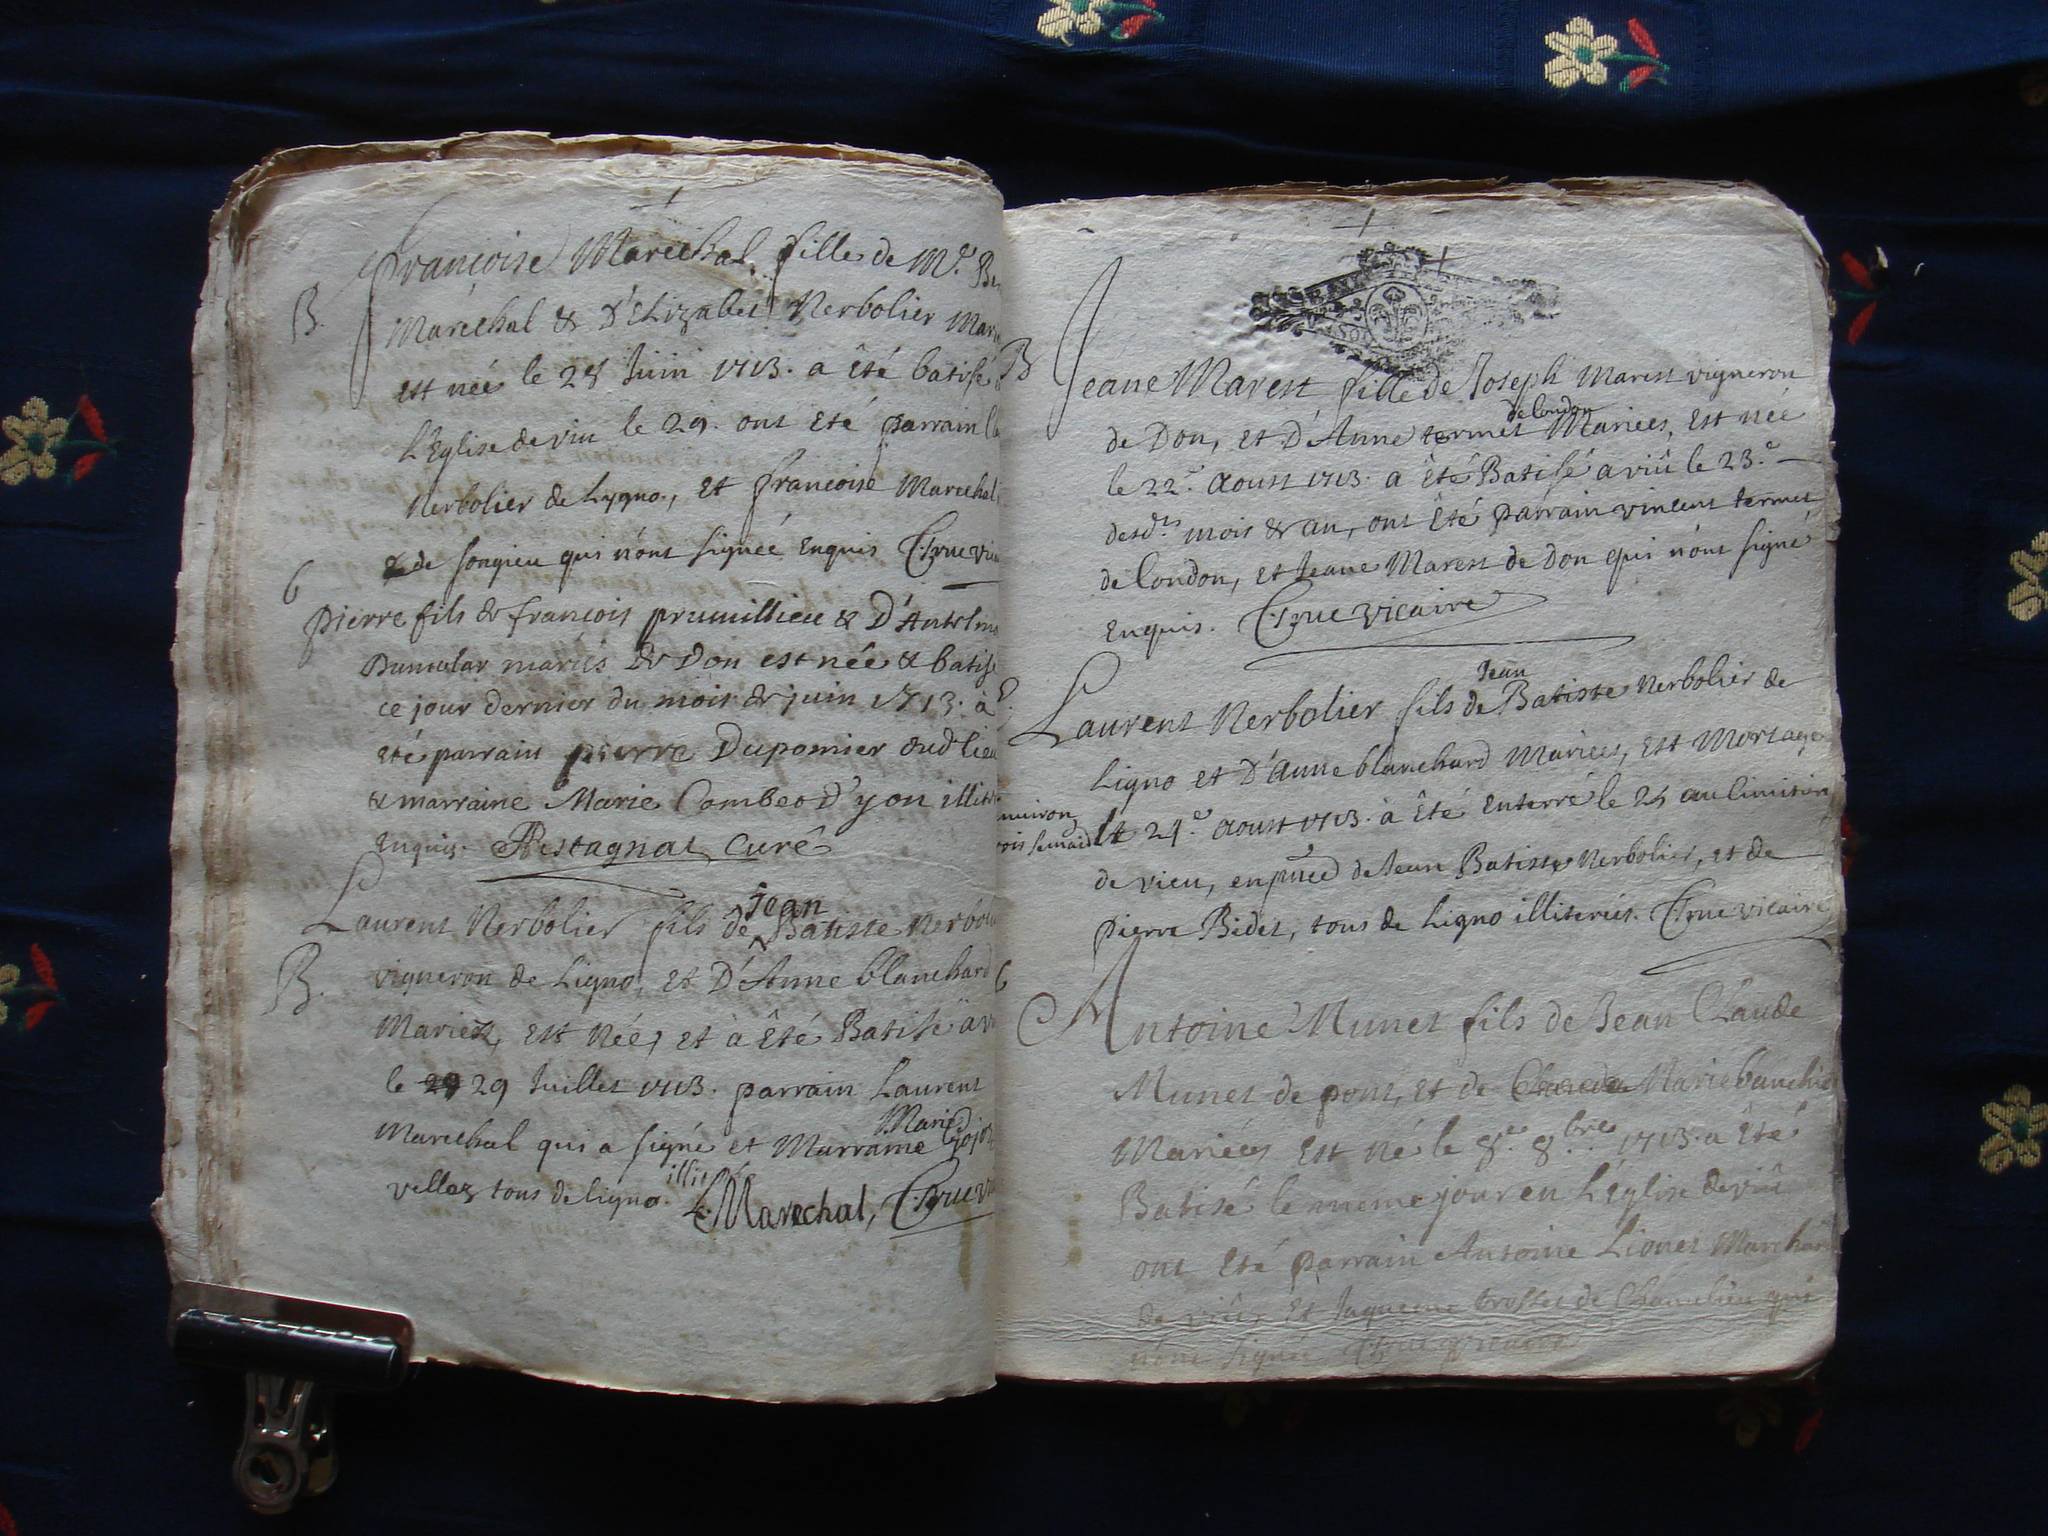 B.
françoise Marechal fille de Mr. Be
Maréchal & D'Elizabet Nerbolier Mari
est née le 28 Juin 1713. a été batisé
L'Eglise de viu le 29. ont Eté parrain
Nerbolier de Lygno, et françoise Marechal
& de songieu qui n'ont signéé Enquis Crue vic
6
pierre fils de françois prumillieu & D'Antelme
Dumolar mariés de Don est née & batisé
ce jour dernier du mois de juin 1713. à
eté parrain pierre Dupomier dud lieu
& marraine Marie Combet D'yon illit
Enquis. Restagnat Curé
Laurent Nerbolier fils de Jean Batiste Nerbol
B.
vigneron de Ligno, et D'Anne blanchard
Mariez, est Née, et à Eté Batisé a v
le 29 29 Juillet 1713. parrain Laurent
Marechal qui a signé et Marraine Marie
vellaz tous de ligno. illit
L. Marechal, Crue v
B
Jeane Marest fille de Joseph Marest vigneron
de Don, et D'Anne termet de londen Mariees, est née
le 22e. Aoust 1713. a été Batisé a viû le 23.e
desdts mois & an, ont Eté parrain vincent termet
de londen, et Jeane Marest de Don qui n'ont signé
Enquis. Crue vicaire
Laurent Nerbolier fils de Jean Batiste Nerbolier de
Ligno et D'Anne blanchard Mariees, est Mort age
environ
trois semaines
le 24.e Aoust 1713. à Été Enterré le 25 au Cimitiere
de vieu, en pnce de Jean Batiste Nerbolier, et de
pierre Bidet, tous de Ligno illiterés. Crue vicaire
6
Antoine Munet fils de Jean Claude
Munet de pont, et de Marie banchi
Mariées est né le 8.e 8.bre 1713. a Eté
Batisé le meme jour en L'Eglise de viû
ont Eté parrain Antoine Lionet Marchan
de viûx et Jaquema brosset de Chamelieu qui
n'ont signée Crue vicaire